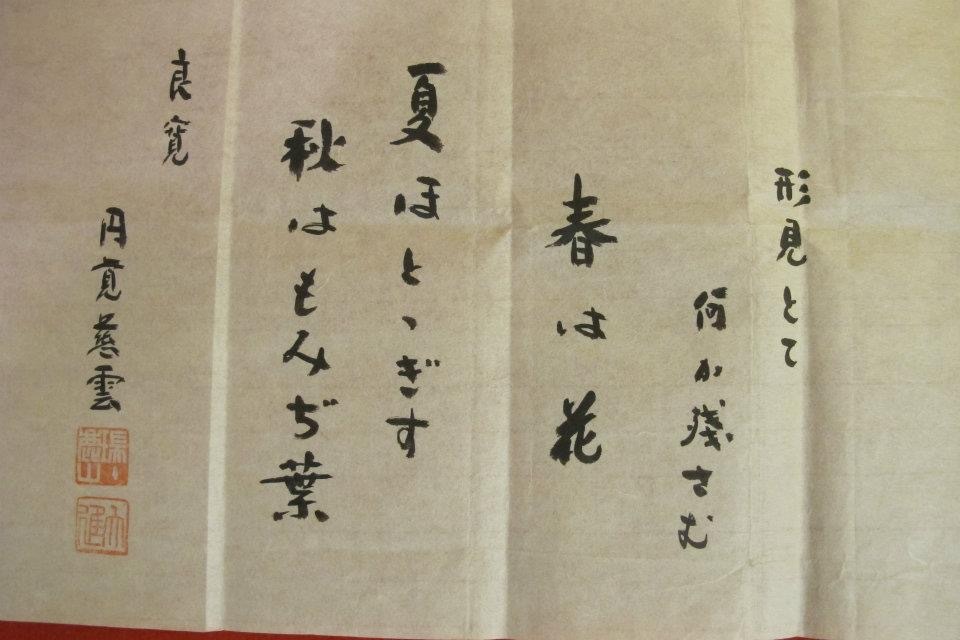 形見とて
何か残さむ
春は花
夏ほとゝぎす
秋はもみぢ葉
良寛
円覚慈雲